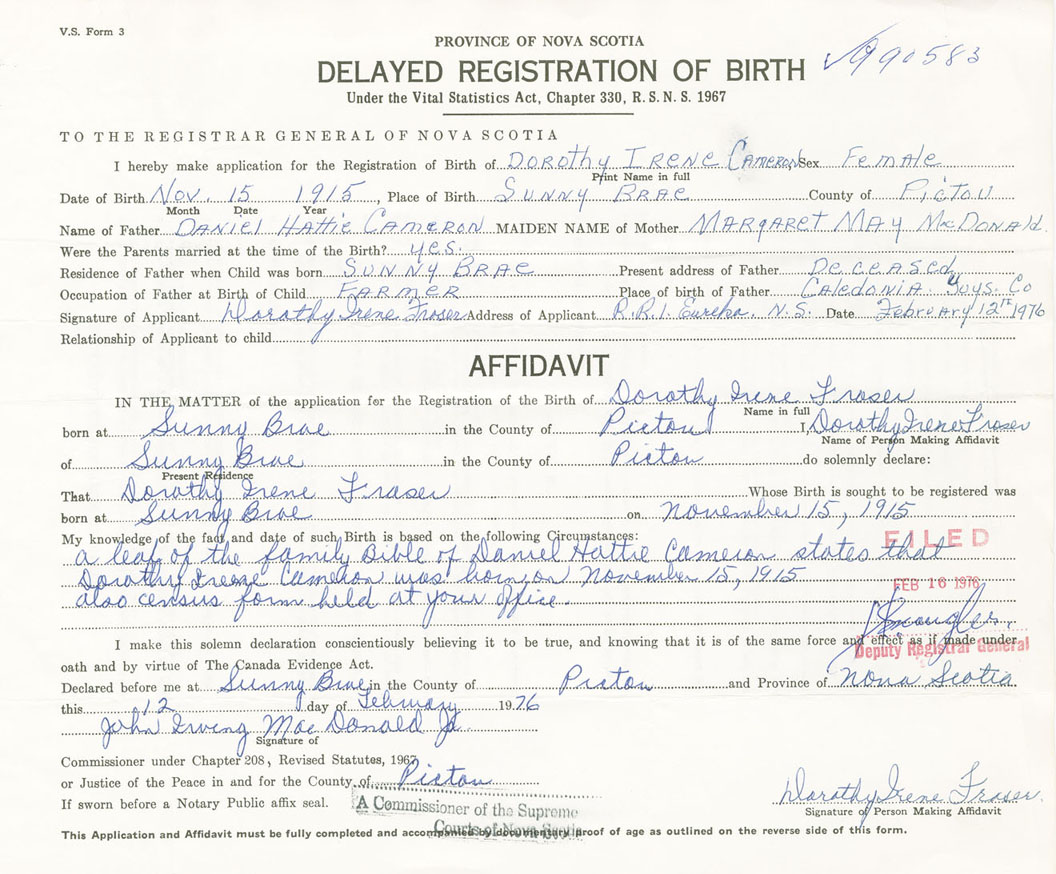 V.S. Form 3
PROVINCE OF NOVA SCOTIA
DELAYED REGISTRATION OF BIRTH
990583
Under the Vital Statistics Act, Chapter 330, R.S.N.S. 1967
TO THE REGISTRAR GENERAL OF NOVA SCOTIA
I hereby make application for the Registration of Birth of Dorothy Irene Cameron Sex Female
Print Name in full
Date of Birth Nov. 15 1915, Place of Birth Sunny Brae County of Pictou
Month Date Year
Name of Father Daniel Hattie Cameron MAIDEN NAME of Mother Margaret May MacDonald.
Were the Parents married at the time of the Birth? yes.
Residence of Father when Child was born Sunny Brae Present address of Father Deceased
Occupation of Father at Birth of Child Farmer Place of birth of Father Caledonia Guys. Co
Signature of Applicant Dorothy Irene Fraser Address of Applicant R.R.1. Eureka, N.S. Date February 12th 1976
Relationship of Applicant to child
AFFIDAVIT
IN THE MATTER of the application for the Registration of the Birth of Dorothy Irene Fraser
Name in full
born at Sunny Brae in the County of Pictou I, Dorothy Irene Fraser
Name of Person Making Affidavit
of Sunny Brae in the County of Pictou do solemnly declare:
Present Residence
That Dorothy Irene Fraser Whose Birth is sought to be registered was
born at Sunny Brae on November 15, 1915
My knowledge of the fact and date of such Birth is based on the following Circumstances:
FILED
a leaf of the family Bible of Daniel Hattie Cameron states that
Dorothy Ireene Cameron was born on November 15, 1915
FEB 16 1976
also census form held at your office.
I make this solemn declaration conscientiously believing it to be true, and knowing that it is of the same force and effect as if made under
Deputy Registrar General
oath and by virtue of The Canada Evidence Act.
Declared before me at Sunny Brae in the County of Pictou and Province of Nova Scotia
this 12 day of February 1976
John Irving MacDonald
Signature of
Commissioner under Chapter 208, Revised Statutes, 1967
or Justice of the Peace in and for the County of Pictou
If sworn before a Notary Public affix seal.
A Commissioner of the Supreme
Courts of Nova Scotia
Dorothy Irene Fraser.
Signature of Person Making Affidavit
This Application and Affidavit must be fully completed and accompanied by documentary proof of age as outlined on the reverse side of this form.